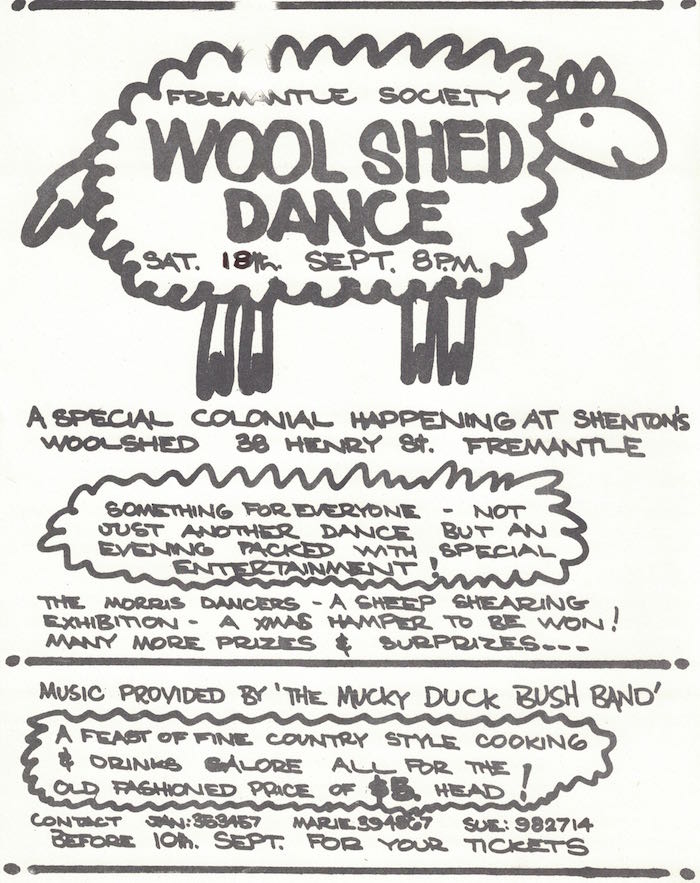 FREMANTLE SOCIETY
WOOL SHED
DANCE
SAT. 18th. SEPT. 8P.M.
A SPECIAL COLONIAL HAPPENING AT SHENTON'S
WOOLSHED 38 HENRY St. FREMANTLE
SOMETHING FOR EVERYONE - NOT
JUST ANOTHER DANCE BUT AN
EVENING PACKED WITH SPECIAL
ENTERTAINMENT!
THE MORRIS DANCERS - A SHEEP SHEARING
EXHIBITION - A XMAS HAMPER TO BE WON!
MANY MORE PRIZES & SURPRIZES---
MUSIC PROVIDED BY 'THE MUCKY DUCK BUSH BAND'
A FEAST OF FINE COUNTRY STYLE COOKING
& DRINKS GALORE ALL FOR THE
OLD FASHIONED PRICE OF $5. HEAD!
CONTACT JAN: 353457 MARIE 394867 SUE: 982714
BEFORE 10th. SEPT. FOR YOUR TICKETS